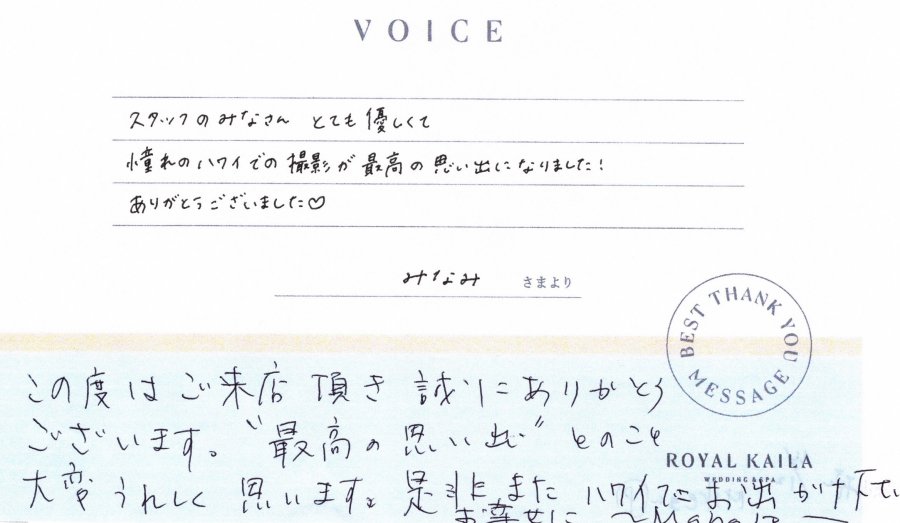 VOICE
スタッフのみなさん とても優しくて
憧れのハワイでの撮影が最高の思い出になりました!
ありがとうございました♡
みなみ さまより
BEST THANK YOU MESSAGE
この度はご来店頂き誠にありがとう
ございます。“最高の思い出”とのこと
ROYAL KAILA
WEDDING & SPA
大変うれしく思います。是非またハワイにお出かけ下さい
お幸せに ~Mahalo~